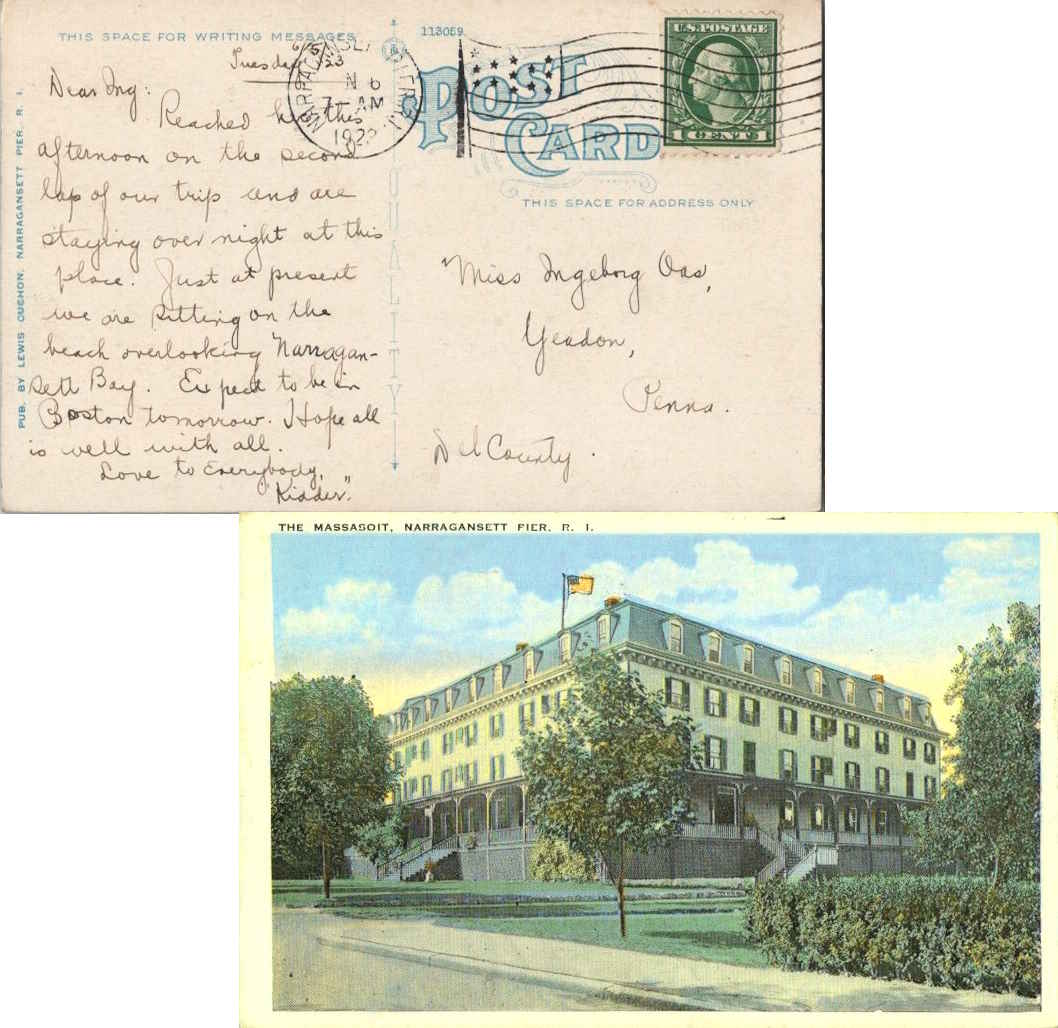 THIS SPACE FOR WRITING MESSAGES
113059
U.S. POSTAGE
1 CENT 1
POST
CARD
THIS SPACE FOR ADDRESS ONLY
NARRAGANSETT PIER R.I.
6
7-AM
192
Tuesday
6/5/23
Dear Ing:
Reached here this
afternoon on the second
lap of our trip and are
staying over night at this
place. Just at present
we are sitting on the
beach overlooking Narragan-
sett Bay. Expect to be in
Boston tomorrow. Hope all
is well with all.
Love to Everybody,
"Kidder".
QUALITY
PUB. BY LEWIS OUCHON, NARRAGANSETT PIER, R. I.
Miss Ingeborg Oas,
Yeadon,
Penna.
Del County.
THE MASSASOIT, NARRAGANSETT PIER, R. I.